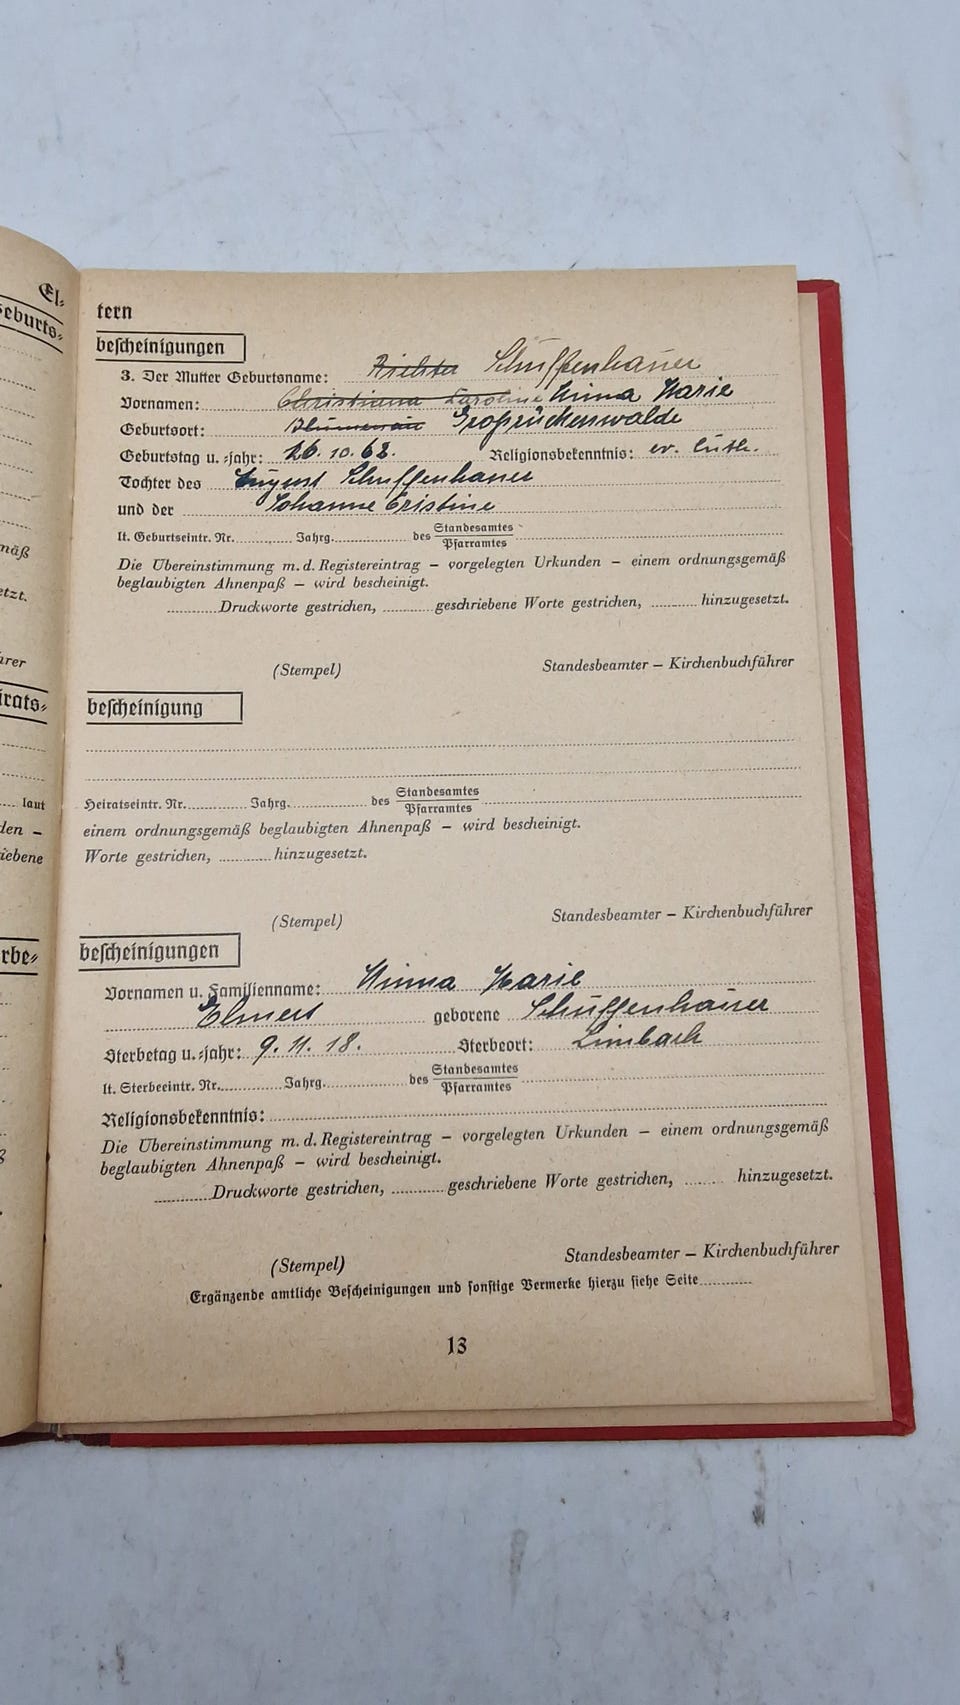 El-
Geburts-
mäß
etzt.
hrer
irats-
laut
den –
iebene
rbe-
tern
bescheinigungen
3. Der Mutter Geburtsname: Richter Schuffenhauer
Vornamen: Christiana Karoline Minna Marie
Geburtsort: Blumenau Großrückerswalde
Geburtstag u. -jahr: 26. 10. 62. Religionsbekenntnis: ev. luth.
Tochter des August Schuffenhauer
und der Johanne Cristine
lt. Geburtseintr. Nr. Jahrg. des Standesamtes
Pfarramtes
Die Übereinstimmung m. d. Registereintrag – vorgelegten Urkunden – einem ordnungsgemäß
beglaubigten Ahnenpaß – wird bescheinigt.
Druckworte gestrichen, geschriebene Worte gestrichen, hinzugesetzt.
(Stempel) Standesbeamter – Kirchenbuchführer
bescheinigung
Heiratseintr. Nr. Jahrg. des Standesamtes
Pfarramtes
einem ordnungsgemäß beglaubigten Ahnenpaß – wird bescheinigt.
Worte gestrichen, hinzugesetzt.
(Stempel) Standesbeamter – Kirchenbuchführer
bescheinigungen
Vornamen u. Familienname: Minna Marie
geborene Schuffenhauer
Sterbetag u. -jahr: 9. 11. 18. Sterbeort: Limbach
lt. Sterbeeintr. Nr. Jahrg. des Standesamtes
Pfarramtes
Religionsbekenntnis:
Die Übereinstimmung m. d. Registereintrag – vorgelegten Urkunden – einem ordnungsgemäß
beglaubigten Ahnenpaß – wird bescheinigt.
Druckworte gestrichen, geschriebene Worte gestrichen, hinzugesetzt.
(Stempel) Standesbeamter – Kirchenbuchführer
Ergänzende amtliche Bescheinigungen und sonstige Vermerke hierzu siehe Seite
13